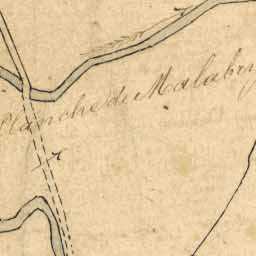 Planche de Malabry